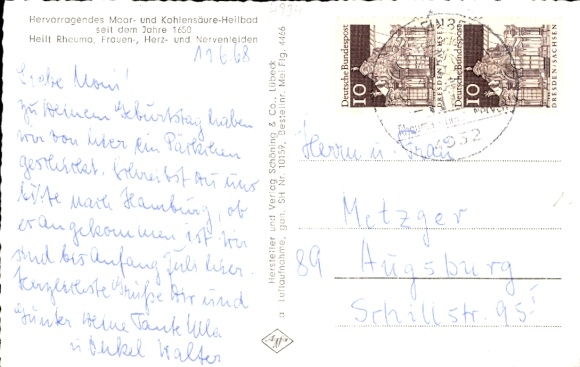 Hervorragendes Moor- und Kohlensäure-Heilbad
seit dem Jahre 1650
Heilt Rheuma, Frauen-, Herz- und Nervenleiden
11668
Liebe Moni!
Zu Deinem Geburtstag haben
wir von hier ein Päckchen
geschickt. Schreibst Du uns
bitte nach Hamburg, ob
er angekommen ist. Wir
sind bis Anfang Juli hier.
Herzlichste Grüße Dir und
Günter Deine Tante Ulla
u. Onkel Walter
Hersteller und Verlag Schöning & Co., Lübeck
Luftaufnahme, gen. SH Nr. 10159, Bestellnr. Mei Flg. 4466
Agfa
Deutsche Bundespost
10
DRESDEN-SACHSEN
Deutsche Bundespost
10
DRESDEN-SACHSEN
Herrn u. Frau
Metzger
89 Augsburg
Schillstr. 95